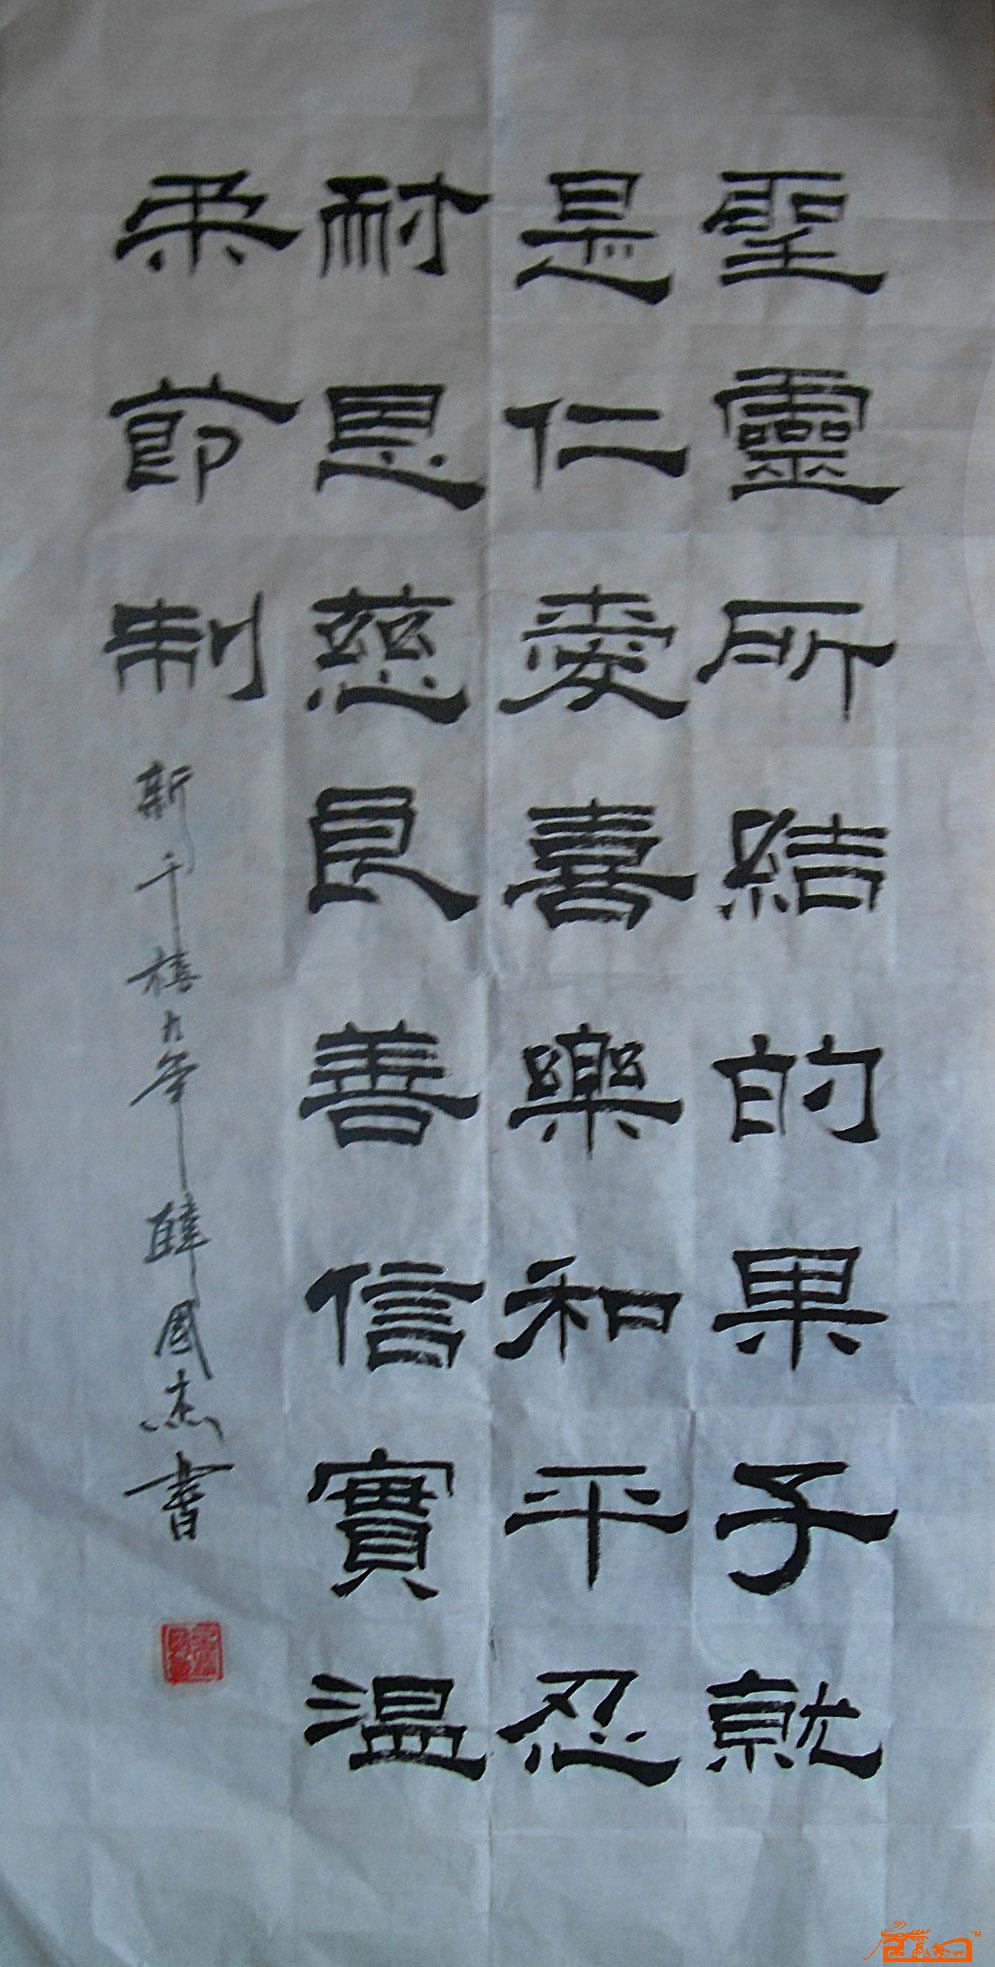 聖靈所結的果子就
是仁愛喜樂和平忍
耐恩慈良善信實溫
柔節制
新千禧九年韓國杰書